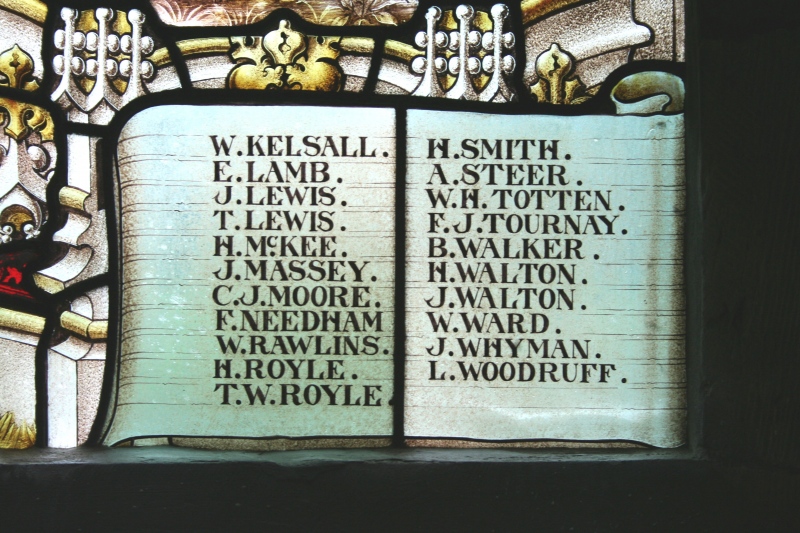 W. KELSALL.
E. LAMB.
J. LEWIS.
T. LEWIS.
H. McKEE.
J. MASSEY.
C. J. MOORE.
F. NEEDHAM
W. RAWLINS.
H. ROYLE.
T. W. ROYLE.
H. SMITH.
A. STEER.
W. H. TOTTEN.
F. J. TOURNAY.
B. WALKER.
H. WALTON.
J. WALTON.
W. WARD.
J. WHYMAN.
L. WOODRUFF.